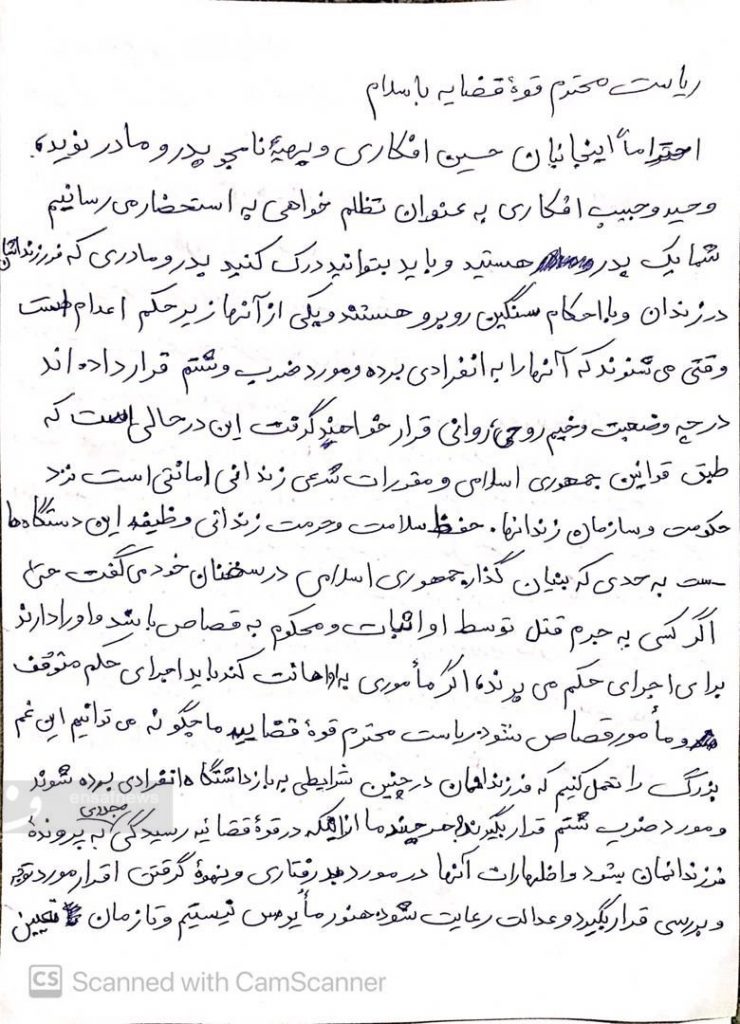 ریاست محترم قوهٔ قضایه باسلام
احتراماً اینجانبان حسین افکاری و بهیهٔ نامجو پدر و مادر نوید،
وحید و حبیب افکاری به عنوان تظلم خواهی به استحضار می رسانیم
شما یک پدر هستید و باید بتوانید درک کنید پدر و مادری که فرزندانشان
در زندان و با احکام سنگین روبرو هستند و یکی از آنها زیر حکم اعدام است
وقتی می شنوند که آنها را به انفرادی برده و مورد ضرب و شتم قرار داده اند
در چه وضعیت وخیم روحی، روانی قرار خواهند گرفت این در حالی است که
طبق قوانین جمهوری اسلامی و مقررات شرعی زندانی امانتی است نزد
حکومت و سازمان زندانها. حفظ سلامت و حرمت زندانی وظیفه این دستگاه ها
ست به حدی که بنیان گذار جمهوری اسلامی در سخنان خود می گفت حتی
اگر کسی به جرم قتل توسط او اثبات و محکوم به قصاص باشد و او را دارند
برای اجرای حکم می برند، اگر مأموری به او اهانت کند باید اجرای حکم متوقف
و مأمور قصاص شود. ریاست محترم قوهٔ قضاییه ما چگونه می توانیم این غم
بزرگ را تحمل کنیم که فرزندانمان در چنین شرایطی به بازداشتگاه انفرادی برده شوند
و مورد ضرب شتم قرار بگیرند. هر چند ما از اینکه در قوهٔ قضائیه رسیدگی مجددی به پروندهٔ
فرزندانمان بشود و اظهارات آنها در مورد بد رفتاری و نهوهٔ گرفتن اقرار مورد توجه
و بررسی قرار بگیرد و عدالت رعایت شود. هنوز مأیوس نیستیم و تا زمان تعیین
ensafnews
CS Scanned with CamScanner